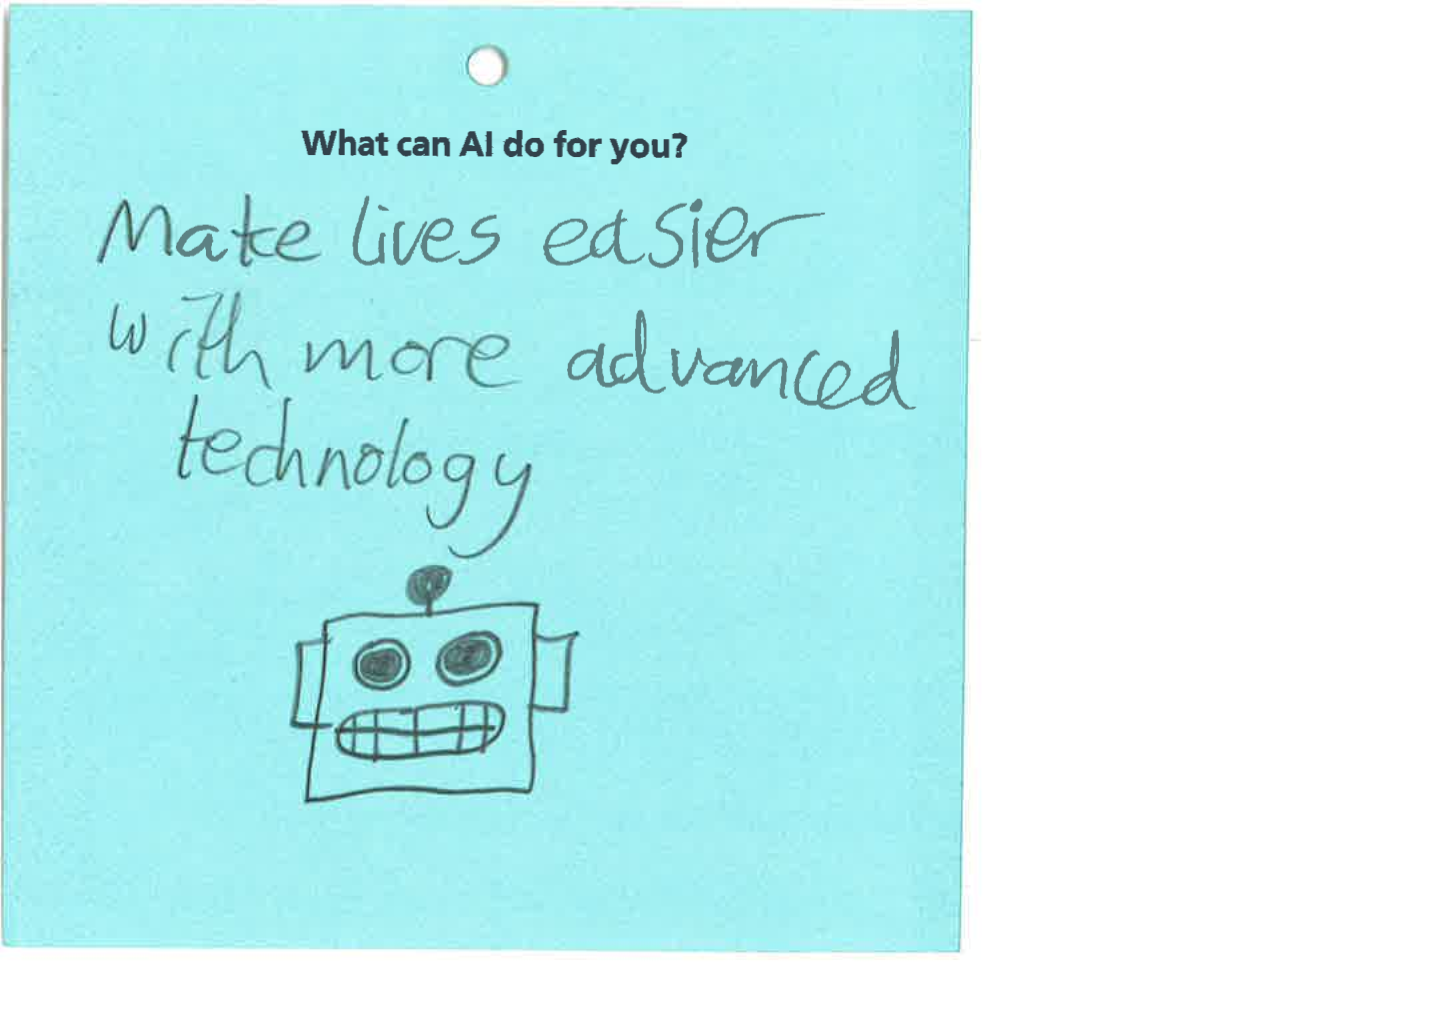 What can AI do for you?
Make lives easier
with more advanced
technology